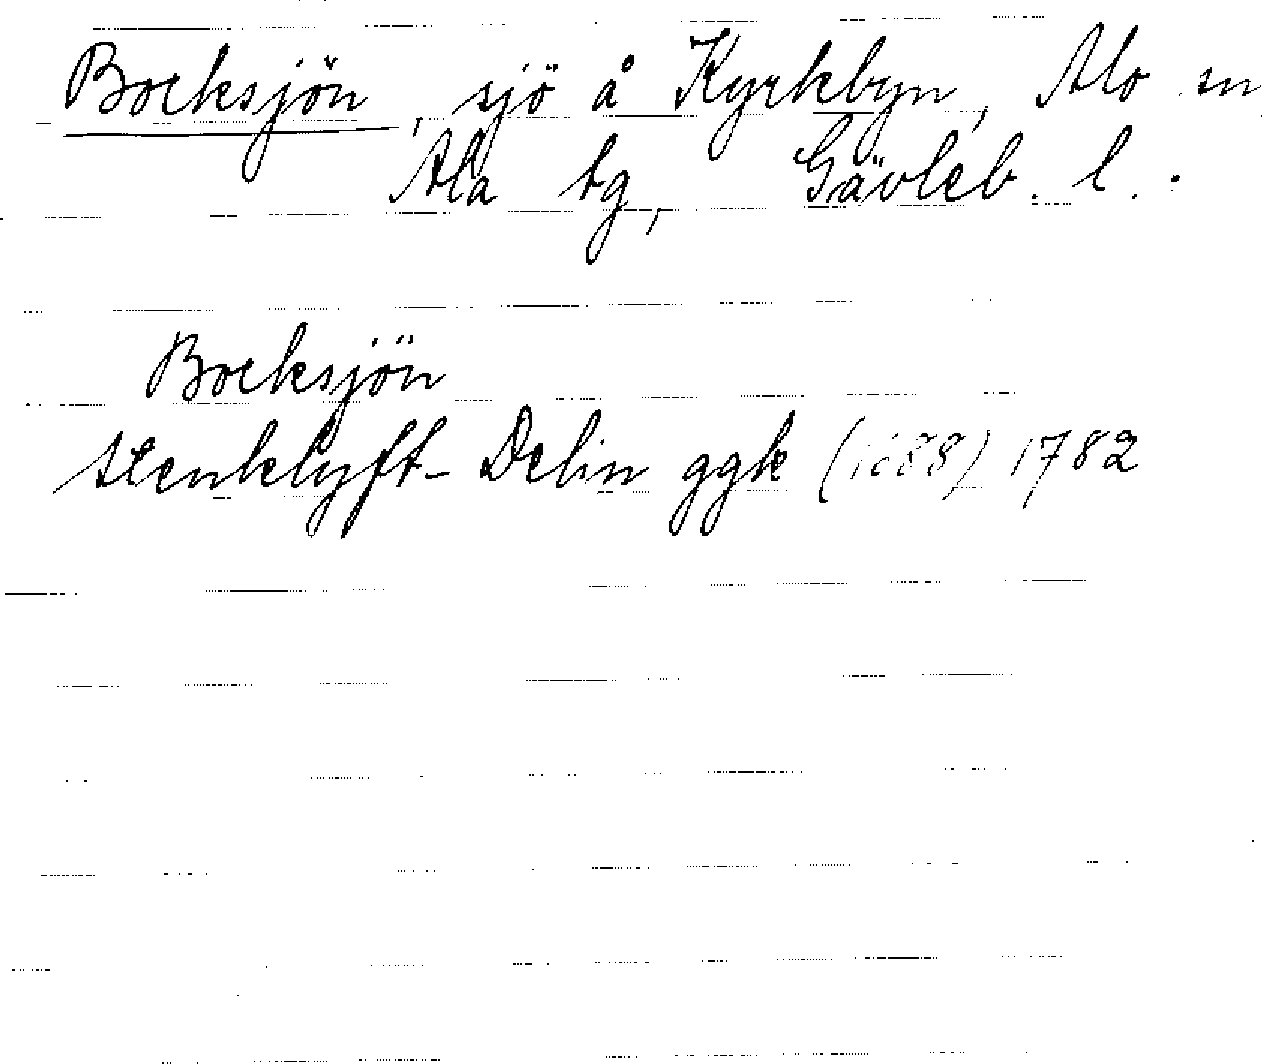 Bocksjön, sjö å Kyrkbyn, Alo sn
Ala tg, Gävleb. l.
Bocksjön
Stenklyft- Delin ggk (1688) 1782